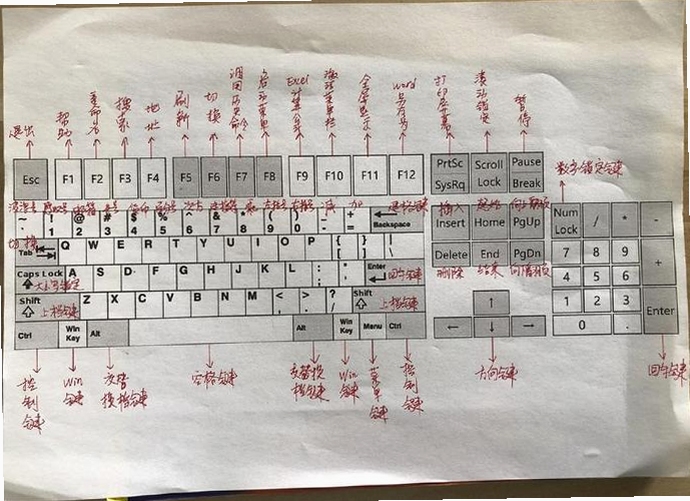 退出
帮助
重命名
搜索
地址
刷新
切换
调用历史命令
启动菜单
Excel计算公式
激活菜单栏
全屏显示
word另存为
打印屏幕
滚动锁定
暂停
Esc F1 F2 F3 F4 F5 F6 F7 F8 F9 F10 F11 F12 PrtSc SysRq Scroll Lock Pause Break
数字锁定键
井号 减 加 退格键 插入 起始 向前翻页
~ 1 @ 2 # 3 $ 4 % 5 6 & 7 * 8 ( 9 ) 0 - + = Backspace Insert Home PgUp Num Lock / * -
切换
Tab Q W E R T Y U I O P { [ } ] | \ Delete End PgDn 7 8 9 +
删除 结束 向后翻页
Caps Lock 大小写锁定 A S D F G H J K L : ; Enter 回车键 4 5 6
Shift 上档键 Z X C V B N M < , > . ? / Shift 上档键 ↑ 1 2 3 Enter
Ctrl Win Key Alt Alt Win Key Menu Ctrl ← ↓ → 0 .
控制键
Win键
交替换档键
空格键
交替换档键
Win键
菜单键
控制键
方向键
回车键